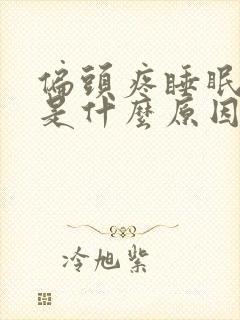 偏頭疼睡眠
是什麼原因
冷旭紫